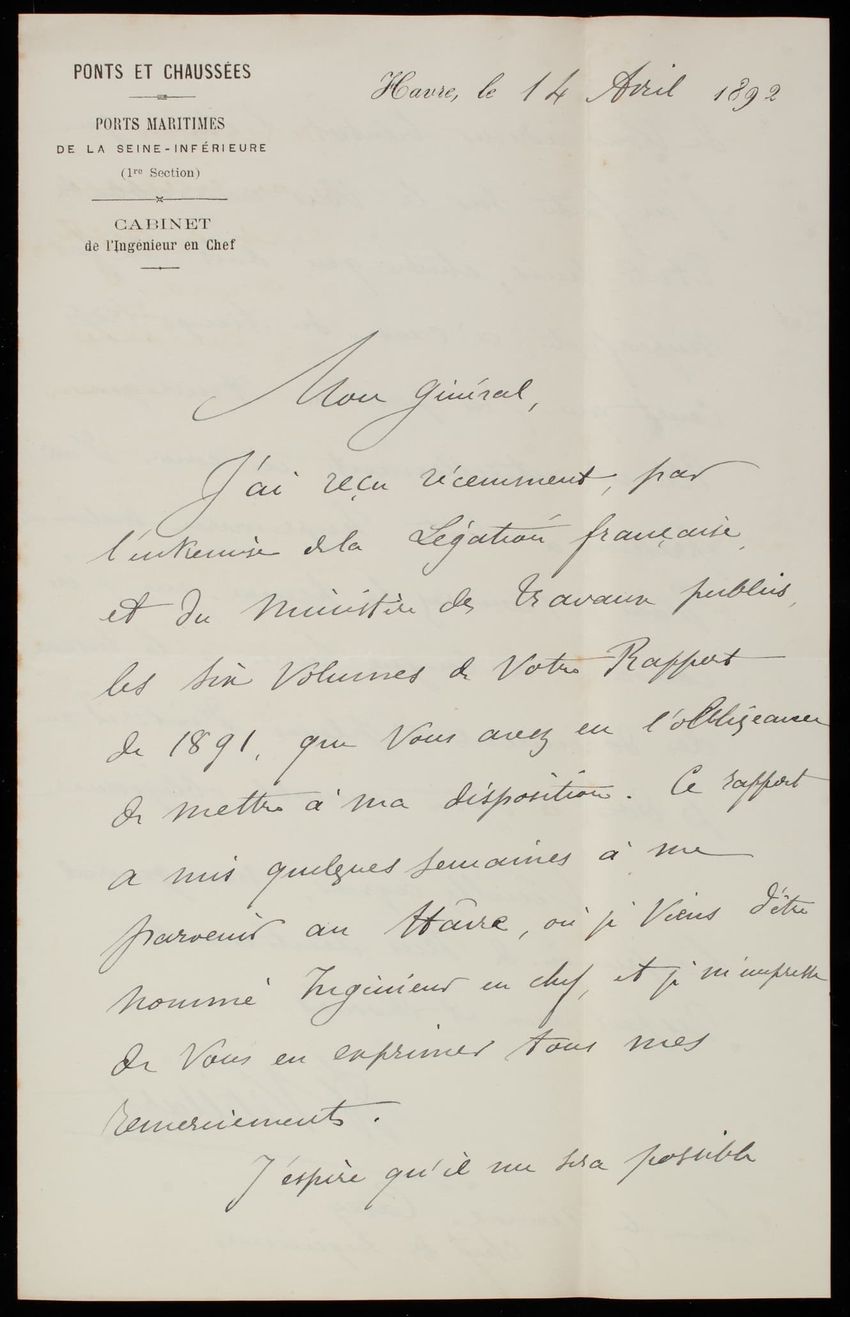 PONTS ET CHAUSSÉES
PORTS MARITIMES
DE LA SEINE-INFÉRIEURE
(1re Section)
CABINET
de l'Ingénieur en Chef
Havre, le 14 Avril 1892
Mon Général,
J'ai reçu récemment, par
l'entremise de la Légation française,
et du Ministère des Travaux publics,
les six Volumes de Votre Rapport
de 1891, que Vous avez eu l'obligeance
de mettre à ma disposition. Ce rapport
a mis quelques semaines à me
parvenir au Hâvre, où je Viens d'être
nommé Ingénieur en chef, et je m'empresse
de Vous en exprimer tous mes
remerciements.
J'espère qu'il me sera possible